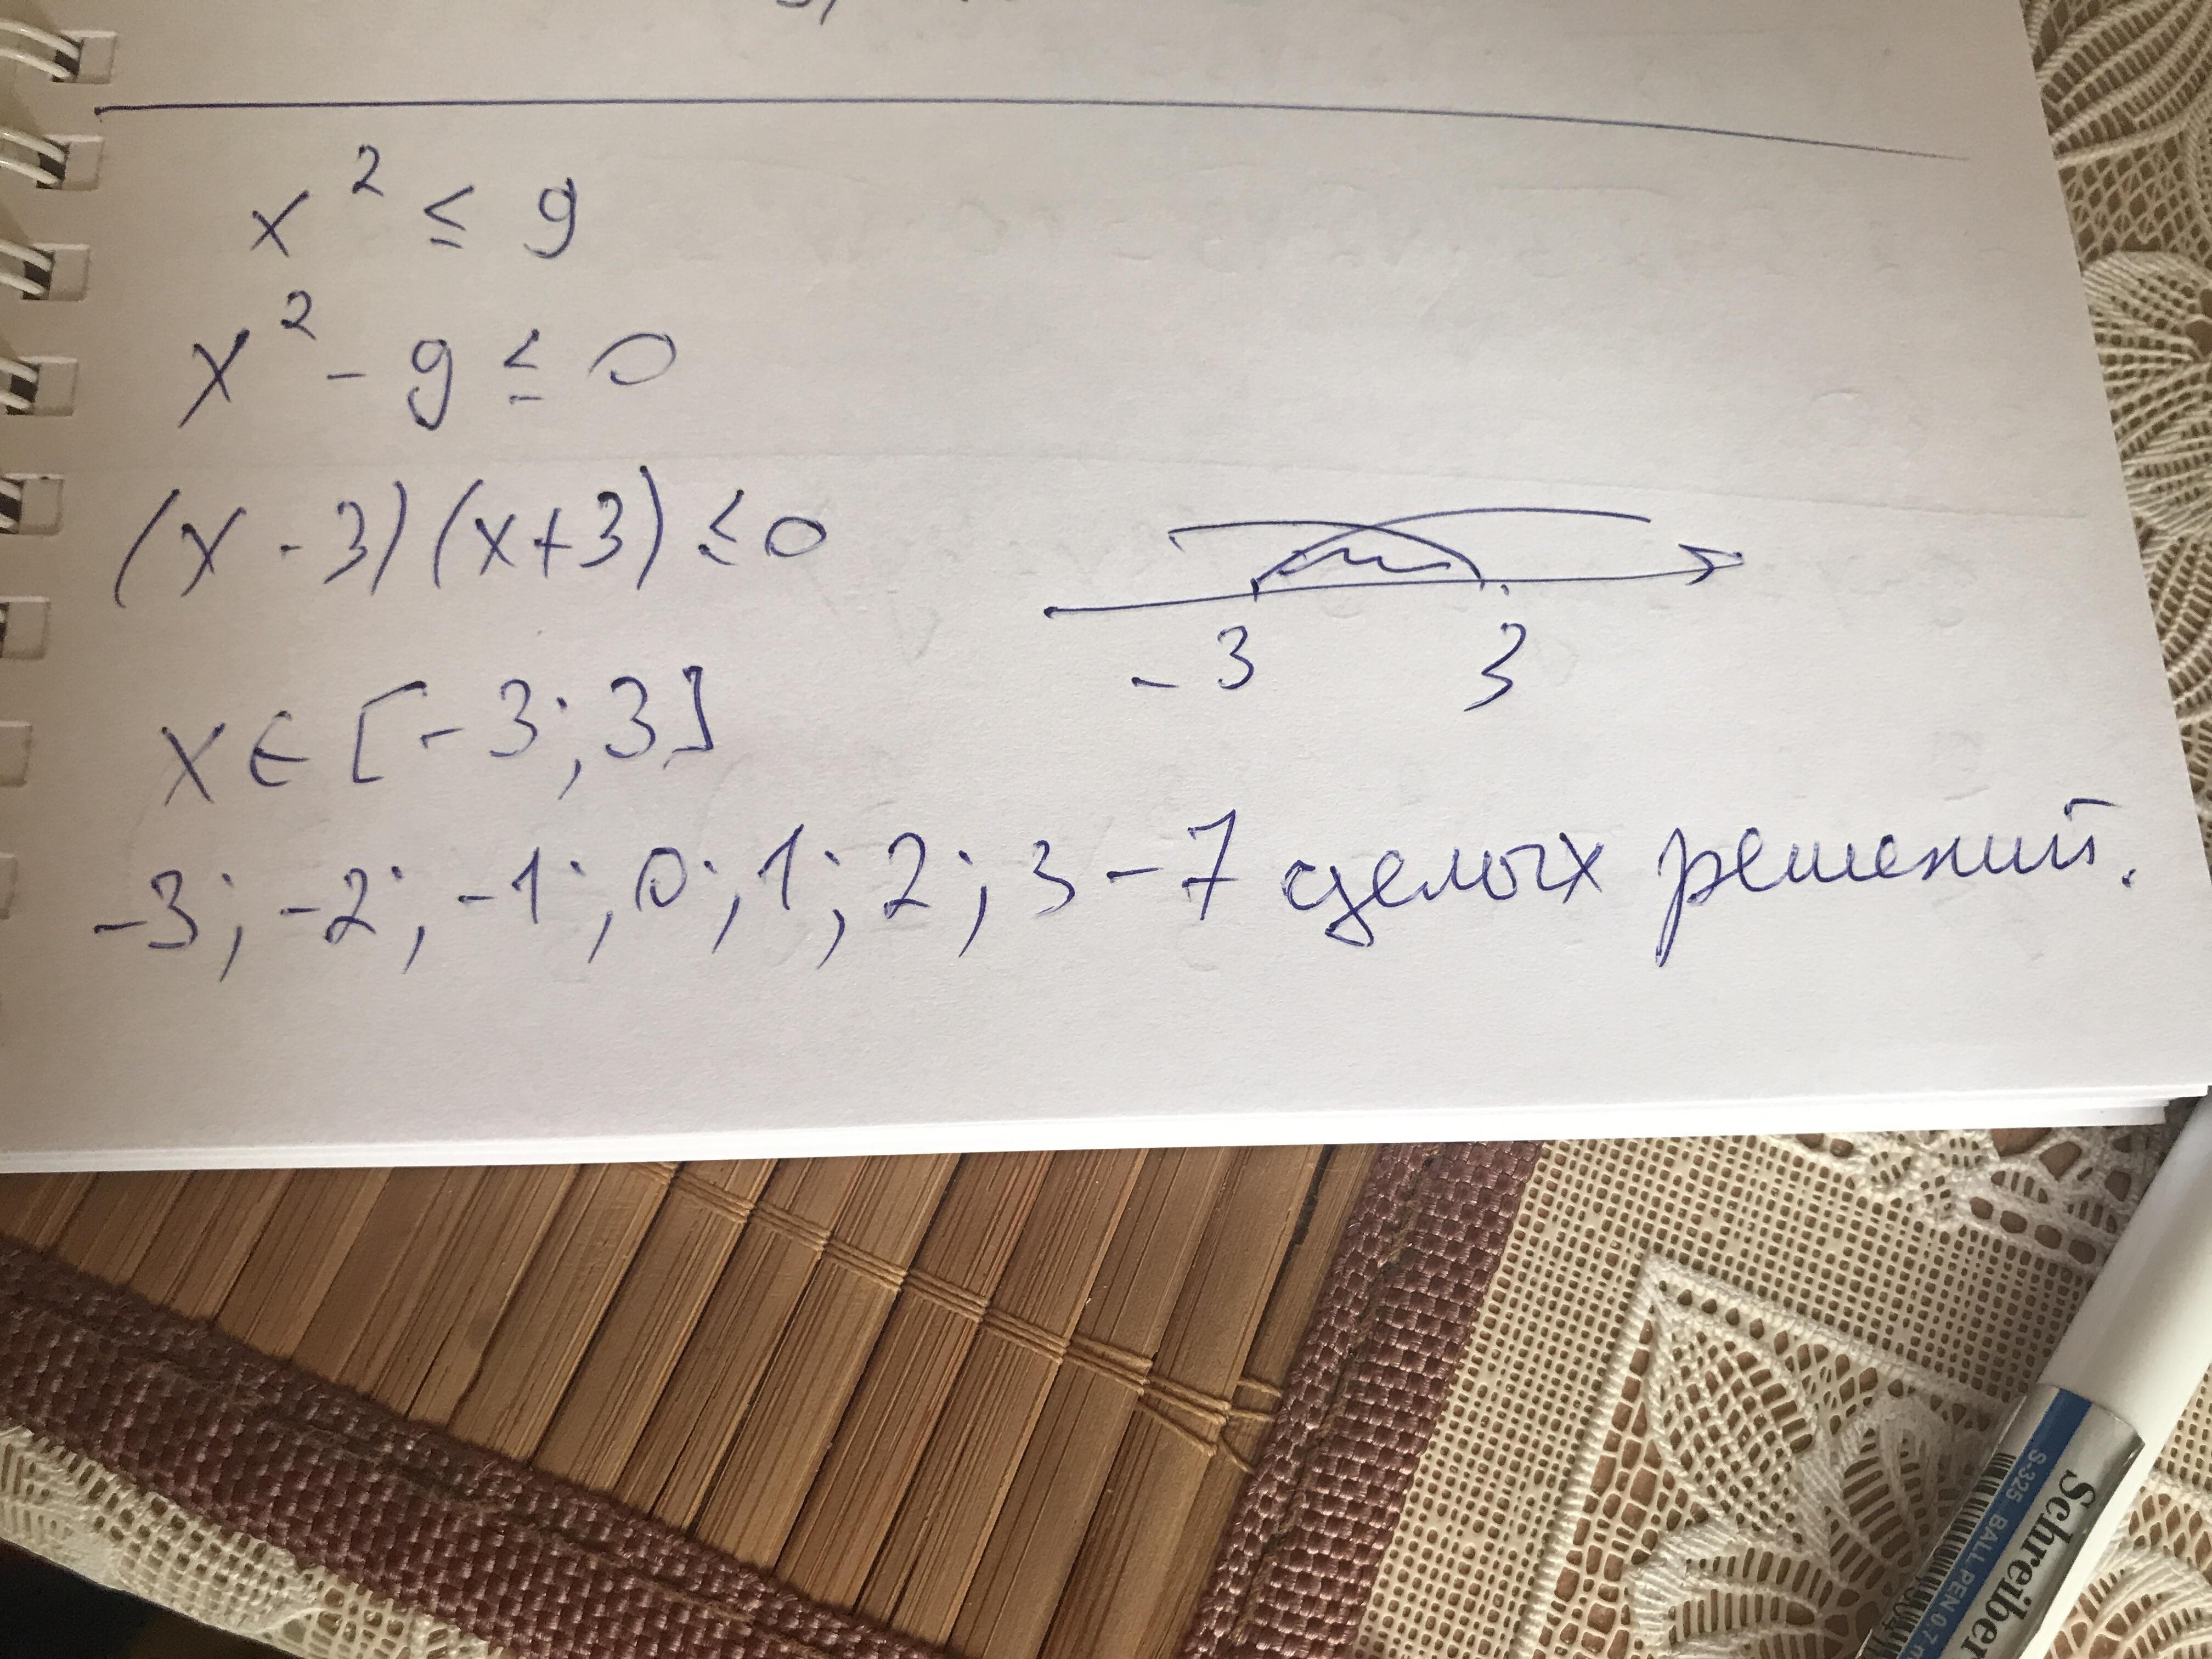 x² ≤ 9
x² - 9 ≤ 0
(x - 3)(x+3) ≤ 0
-3 3
x ∈ [-3; 3]
-3; -2; -1; 0; 1; 2; 3 - 7 целых решений.
Schreiber
S-325 BALL PEN 0.7